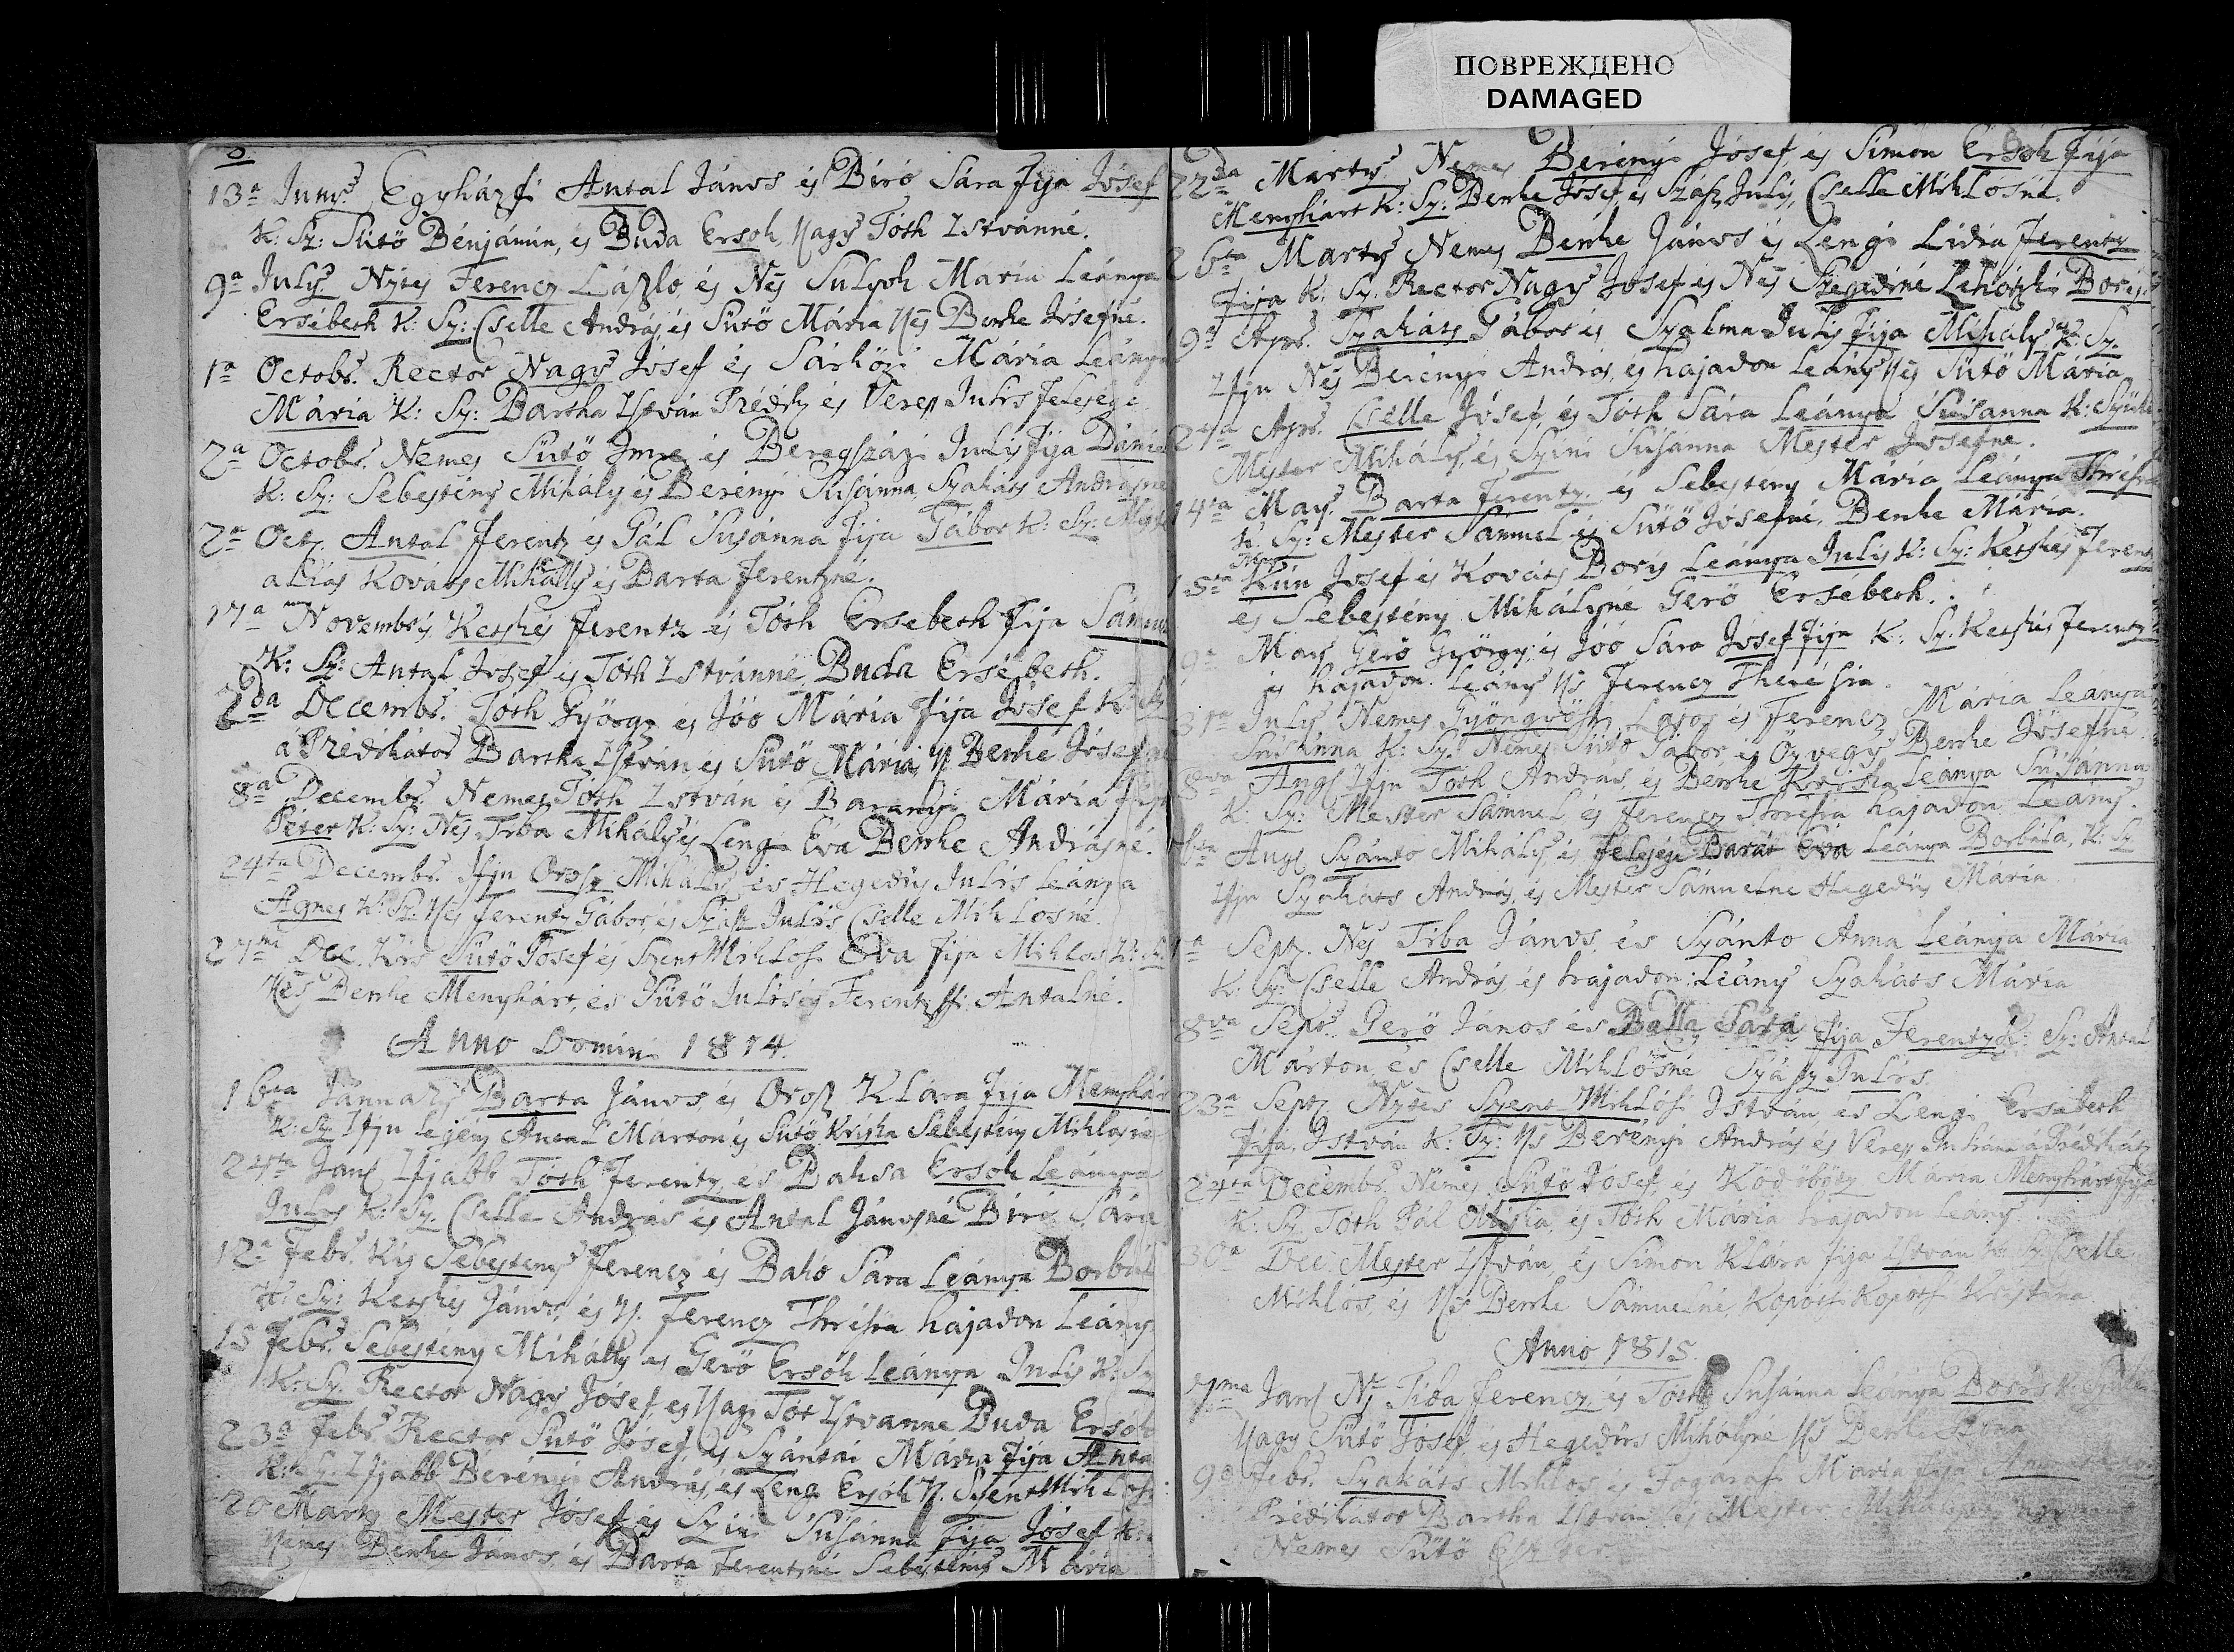 ПОВРЕЖДЕНО
DAMAGED
13a Juny Egyházfi Antal János és Biró Sára fija Jósef
K: Sz: Sütö Bénjámin, és Buda Ersok, Nagy Tóth Istvánné.
9a July Nztes Ferencz László, és Ns Sulyok Mária Leánya
Ersébeth K: Sz: Cselle András és Sütö Mária Ns Benke Jósefné.
1a Octobr. Rector Nagy Jósef és Sárközi Mária Leánya
Mária K: Sz: Bartha István Prédik és Veress Julis felesége
2a Octobr. Nemes Sütö Imre és Beregszázi Julis fija Dániel
K: Sz: Sebestény Mihály és Berényi Susánna, Szakáts Andrásné
2a Oct. Antal Ferentz és Pál Susánna fija Gábor K: Sz: Mester
aliás Kováts Mihálly és Barta Ferentzné.
17a Novembris Ketskés Ferentz és Tóth Ersebeth fija Sámuel
K: Sz: Antal Josef és Tóth Istvánné Buda Ersébeth.
2da Decembr. Tóth György és Jóó Mária fija Jósef K: Sz
a Prédikátor Bartha István és Sütö Mária N Benke Jósefné
8a Decembr. Nemes Tóth István és Baranyi Mária fija
Péter K: Sz: Ns Tiba Mihály és Lengi Éva Benke Andrásné.
24ta Decembr. Ifju Orosz Mihály és Hegedüs Julis Leánya
Ágnes K: Sz: Ns Ferentz Gábor és Szász Julis Cselle Miklosné.
27ma Dec. Kis Sütö Josef és Szent Miklosi Éva fija Miklos K: Sz.
Ns Benke Menyhárt, és Sütö Julis ifj Ferentzfi Antalné.
Anno Domini 1814.
16ta January Barta János és Orosz Klára fija Menyhárt
K: Sz: Ifju Legény Antal Márton és Sütö Kriska Sebestény Miklosné
24ta Jan Ifjabb Tóth Ferentz és Baksa Ersok Leánya
Julis K: Sz. Cselle András és Antal Jánosné Biró Sára
12a Febr. Kis Sebesteny Ferencz és Bakó Sára Leánya Borbál
K: Sz: Ketskés János, és N. Ferencz Thrésia hajadon Leány
15 Febr. Sebestény Mihálly és Gerö Ersók Leánya Julis K: Sz
K: Sz. Rector Nagy Jósef és Nagy Tót Istvanne Buda Ersók
23a Febr Rector Sütö Jósef, és Szántai Maria fija Anta
K: Sz. Ifjabb Berényi András, és Lengi Ersók N. Szent Miklosi
20 Marty Mester Jósef és Szini Susánna fija Josef K:
Nemes Benke János, és Barta Ferentzné Sebestény Mária
22da Marty Nemes Berényi Jósef, és Simon Ersók fija
Menyhárt K: Sz: Benke Josef, és Szász July, Cselle Miklosné.
26ta Marty Nemes Benke János és Lengi Lidia Ferentz
fija K: Sz. Rector Nagy Josef és Ns Szegediné Lehótzki Boris.
9a Apr. Szakáts Gábor és Szalma Julis fija Mihály K: Sz.
Ifju Ns Berényi András, és hajadon Leány Ns Sütö Mária
27a Apr. Cselle Jósef, és Tóth Sára Leánya Susanna K: Szülei
Mester Mihály, és Szini Susanna Mester Josefne.
14ta May. Barta Ferentz és Sebestény Mária Leánya Thrésia
K: Sz: Mester Sámuel és Sütö Jósefné, Benke Mária.
15ta May Kún Josef és Kováts Boris Leánya Julis K: Sz: Ketskés Ferentz
és Sebestény Mihályné Gerö Ersébeth.
May Gerö György és Jóó Sára Jósef fija K: Sz. Ketskés Ferentz
és hajadon Leány Ns Ferencz Theresia.
31a July Nemes Gyöngyösi Lajos és Ferencz Mária Leánya
Susánna K: Sz: Nemes Sütö Gábor és Özvegy Benke Jósefné.
8va Aug Ifju Tóth András, és Benke Kriska Leánya Susánna
K: Sz: Mester Sámuel és Ferencz Thrésia hajadon Leány.
Aug Szántó Mihály, és felesége Barát Éva Leánya Borbála, K: Sz
Ifju Szakáts András, és Mester Sámuelne Hegedüs Mária
1a Sept. Ns Tiba János, és Szánto Anna Leánya Mária
K. Sz: Cselle András és hajadon Leány Szakáts Mária
8va Sept. Gerö János és Balla Sára fija Ferentz K: Sz: Antal
Márton, és Cselle Miklósné Szász Julis.
23a Sept Nztes Szent Miklósi István és Lengi Ersébeth
fija István K: Sz: Ns Berényi András és Veress Juliánna a Prédikát
24ta Decembr. Nemes Sütö Jósef, és Ködöböcz Mária Menyhárt fija
K: Sz. Tóth Pál és Tóth Mária hajadon Leány.
30a Dec. Mester István, és Simon Klára fija Istvan K: Sz. Cselle
Miklós, és Ns Benke Sámuelné Kopótsi Kristina
Anno 1815.
7ma Jan Ns Tiba Ferencz, és Tóth Susánna Leánya Boris K: Szülei
Nagy Sütö Josef, és Hegedüs Mihályné Ns Benke
9a Febr. Szakáts Miklos, és Fogarasi Mária fija
Prédikátor Bartha István és Mester Mihályné
Nemes Sütö Eszter